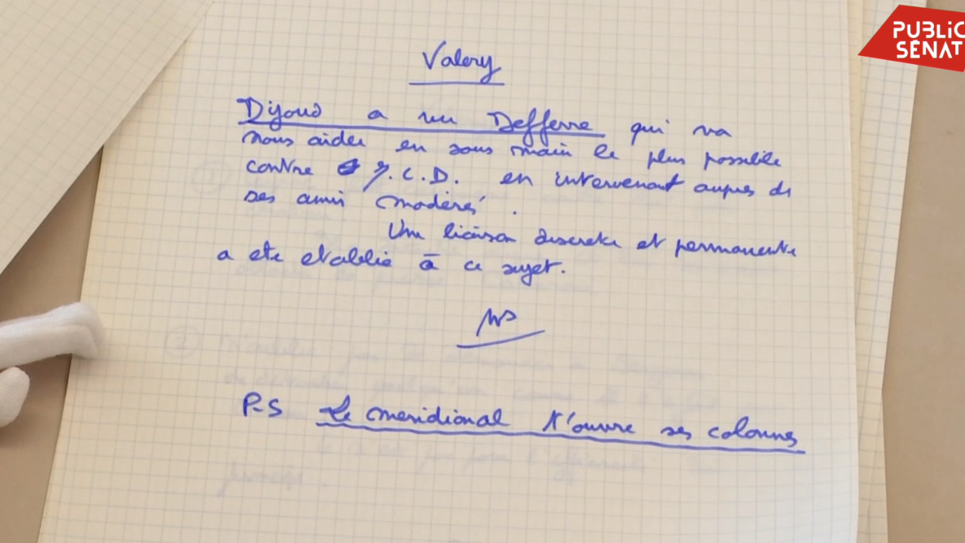 PUBLIC
SÉNAT
Valery
Dijoud a vu Defferre qui va
nous aider en sous main le plus possible
contre J.C.D. en intervenant aupres de
ses amis modérés.
Une liaison discrete et permanente
a ete etablie à ce sujet.
P-S Le meridional t'ouvre ses colonnes